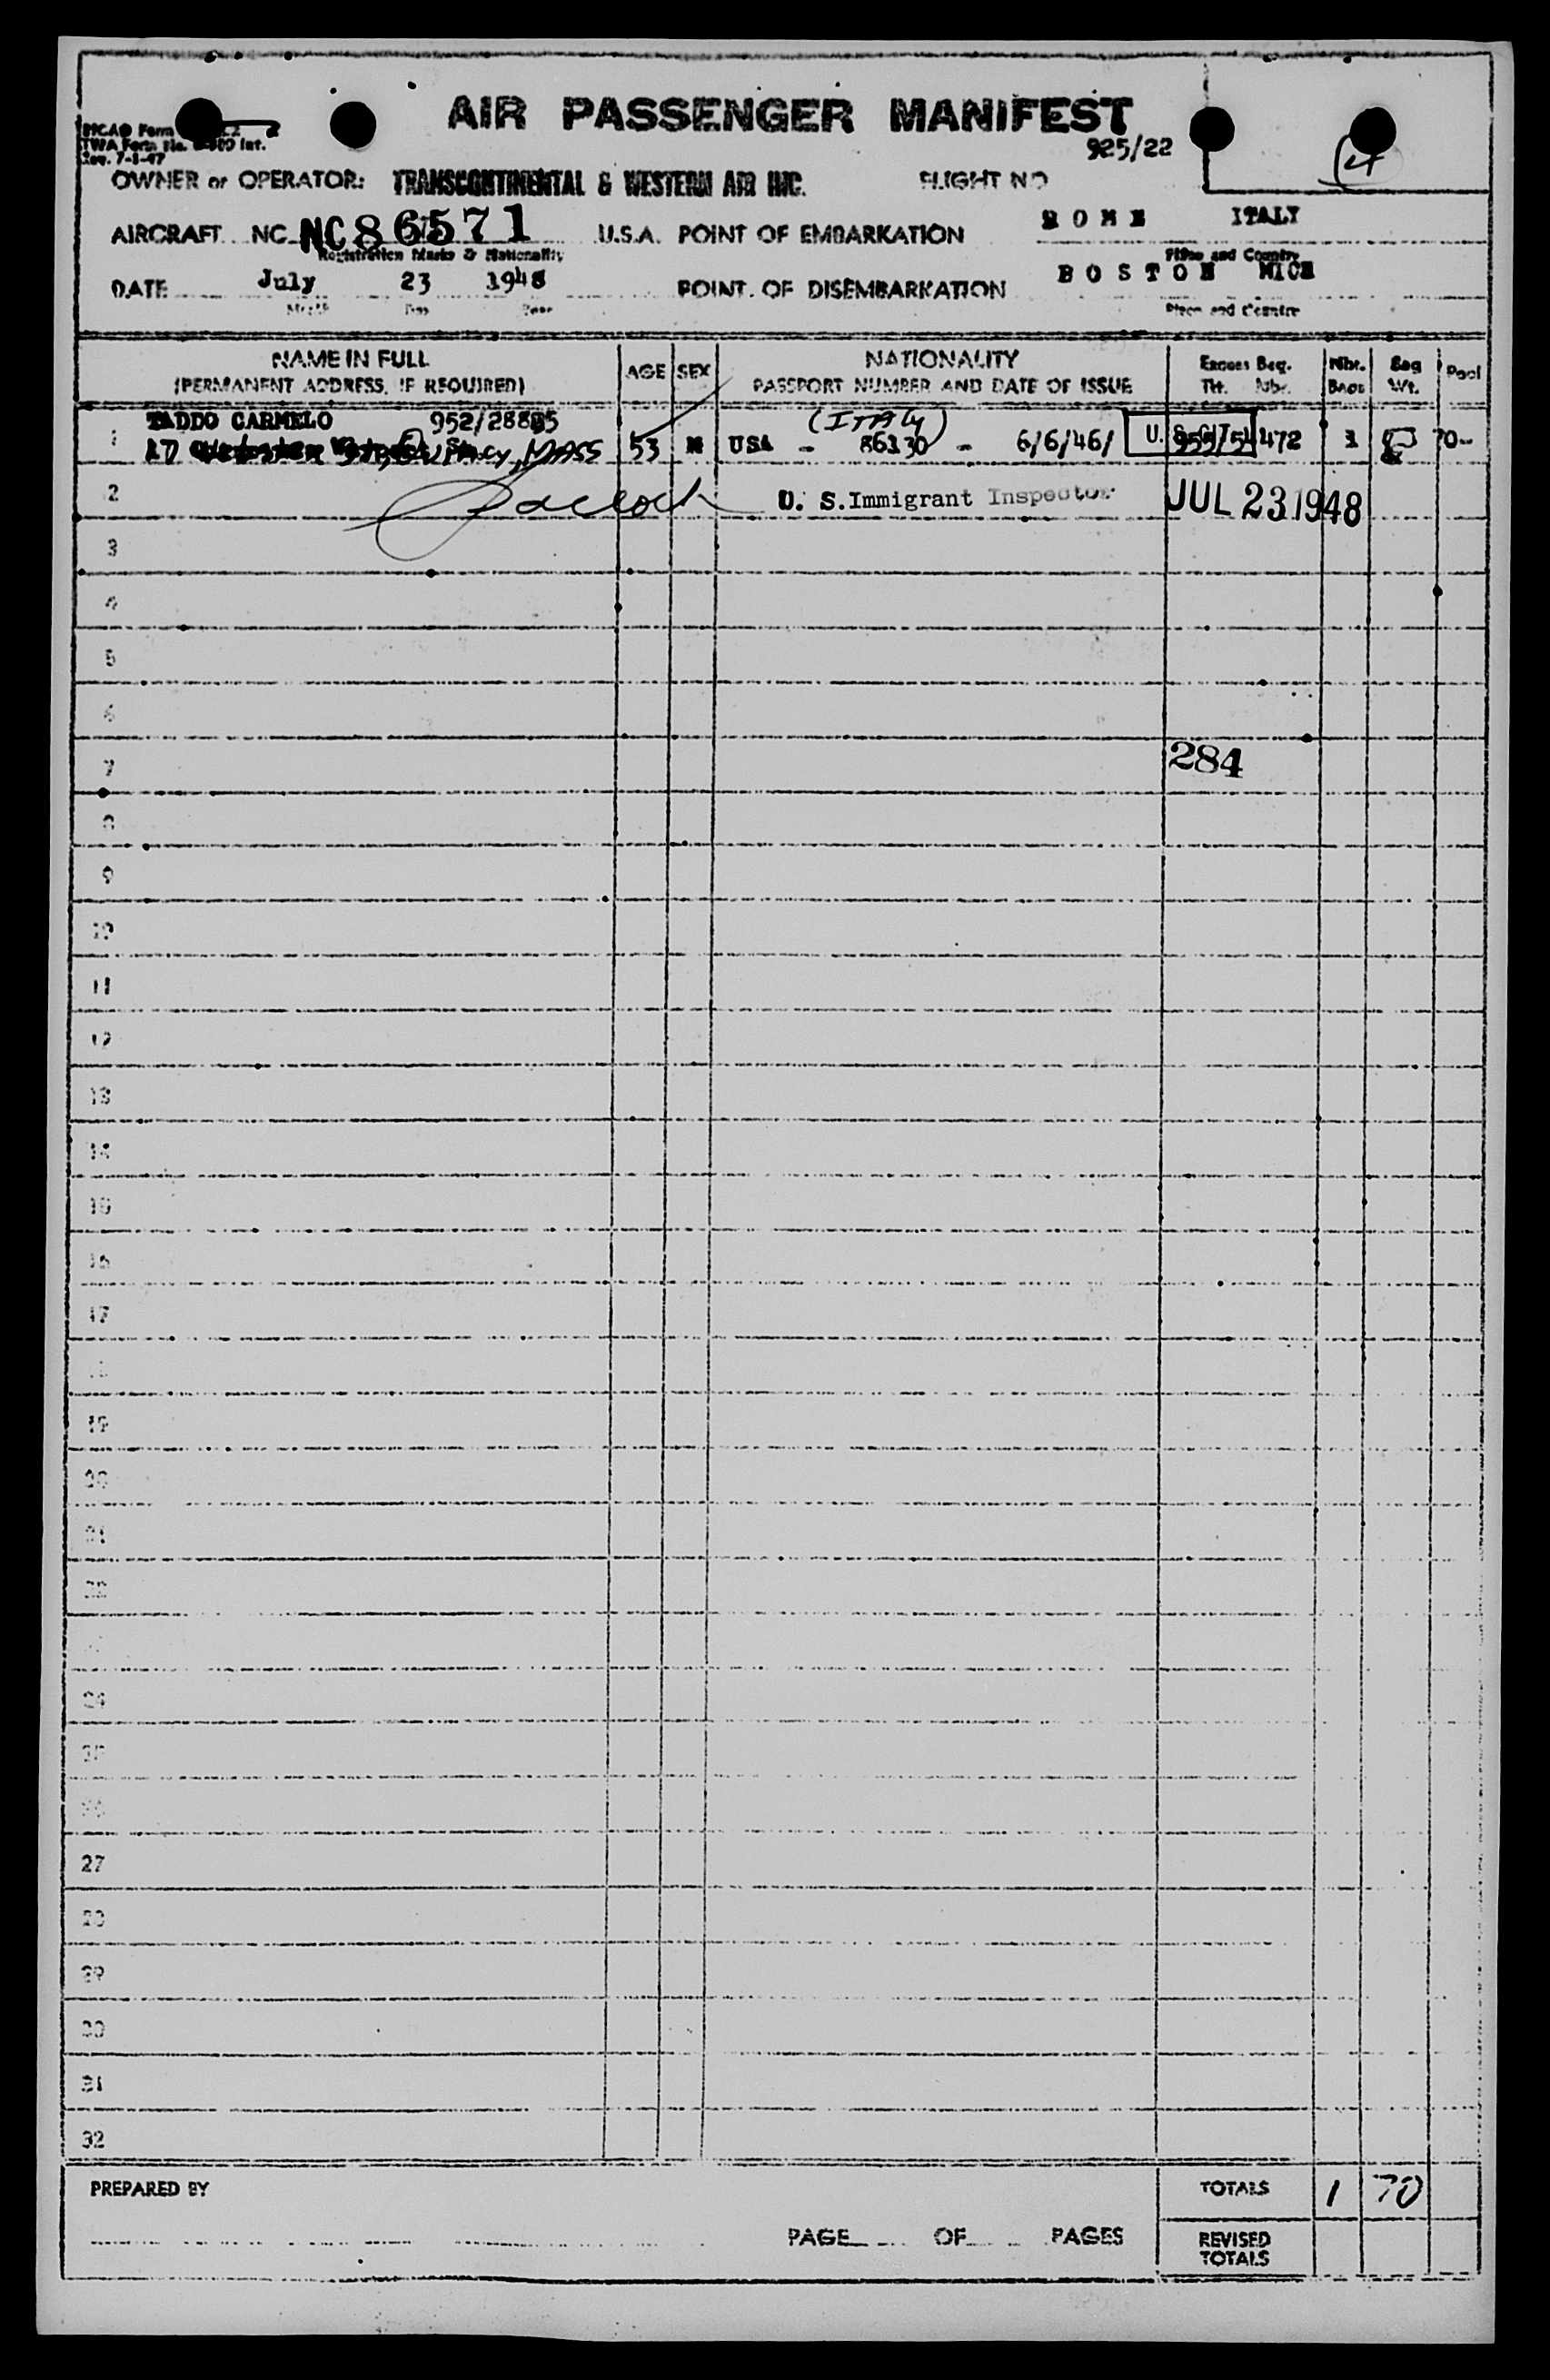 AIR PASSENGER MANIFEST
925/22
4
TWA Form No. Int.
Rev. 7-1-47
OWNER or OPERATOR: TRANSCONTINENTAL & WESTERN AIR INC. FLIGHT NO
AIRCRAFT NC NC86571 U.S.A. POINT OF EMBARKATION ROME ITALY
Registration Marks & Nationality Place and Country
DATE July 23 1948 POINT OF DISEMBARKATION BOSTON MICH
Month Day Year Place and Country
NAME IN FULL
(PERMANENT ADDRESS, IF REQUIRED)
AGE SEX
NATIONALITY
PASSPORT NUMBER AND DATE OF ISSUE
Excess Bag.
Tkt. Nbr.
Nbr.
Bags
Bag
Wt.
Pool
TADDO CARMELO 952/28885
1 17 St., Quincy, MASS 53 M USA - 86130 - 6/6/46/ U.S. CIT. 955/54472 1 70-
(ITALY)
2 U. S. Immigrant Inspector JUL 23 1948
3
4
5
6
7 284
8
9
10
11
12
13
14
15
16
17
19
20
21
22
24
25
26
27
28
29
30
31
32
PREPARED BY
TOTALS 1 70
PAGE OF PAGES
REVISED
TOTALS